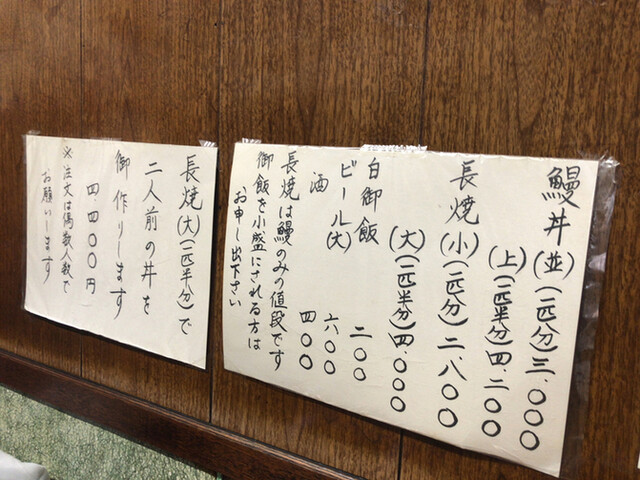 鰻丼(並)(一匹分)三.〇〇〇
(上)(一匹半分)四.二〇〇
長焼(小)(一匹分)二.八〇〇
(大)(一匹半分)四.〇〇〇
白御飯 二〇〇
ビール(大) 六〇〇
酒 四〇〇
長焼は鰻のみの値段です
御飯を小盛にされる方は
お申し出下さい
長焼(大)(一匹半分)で
二人前の丼を
御作りします
四.四〇〇円
※注文は偶数人数で
お願いします